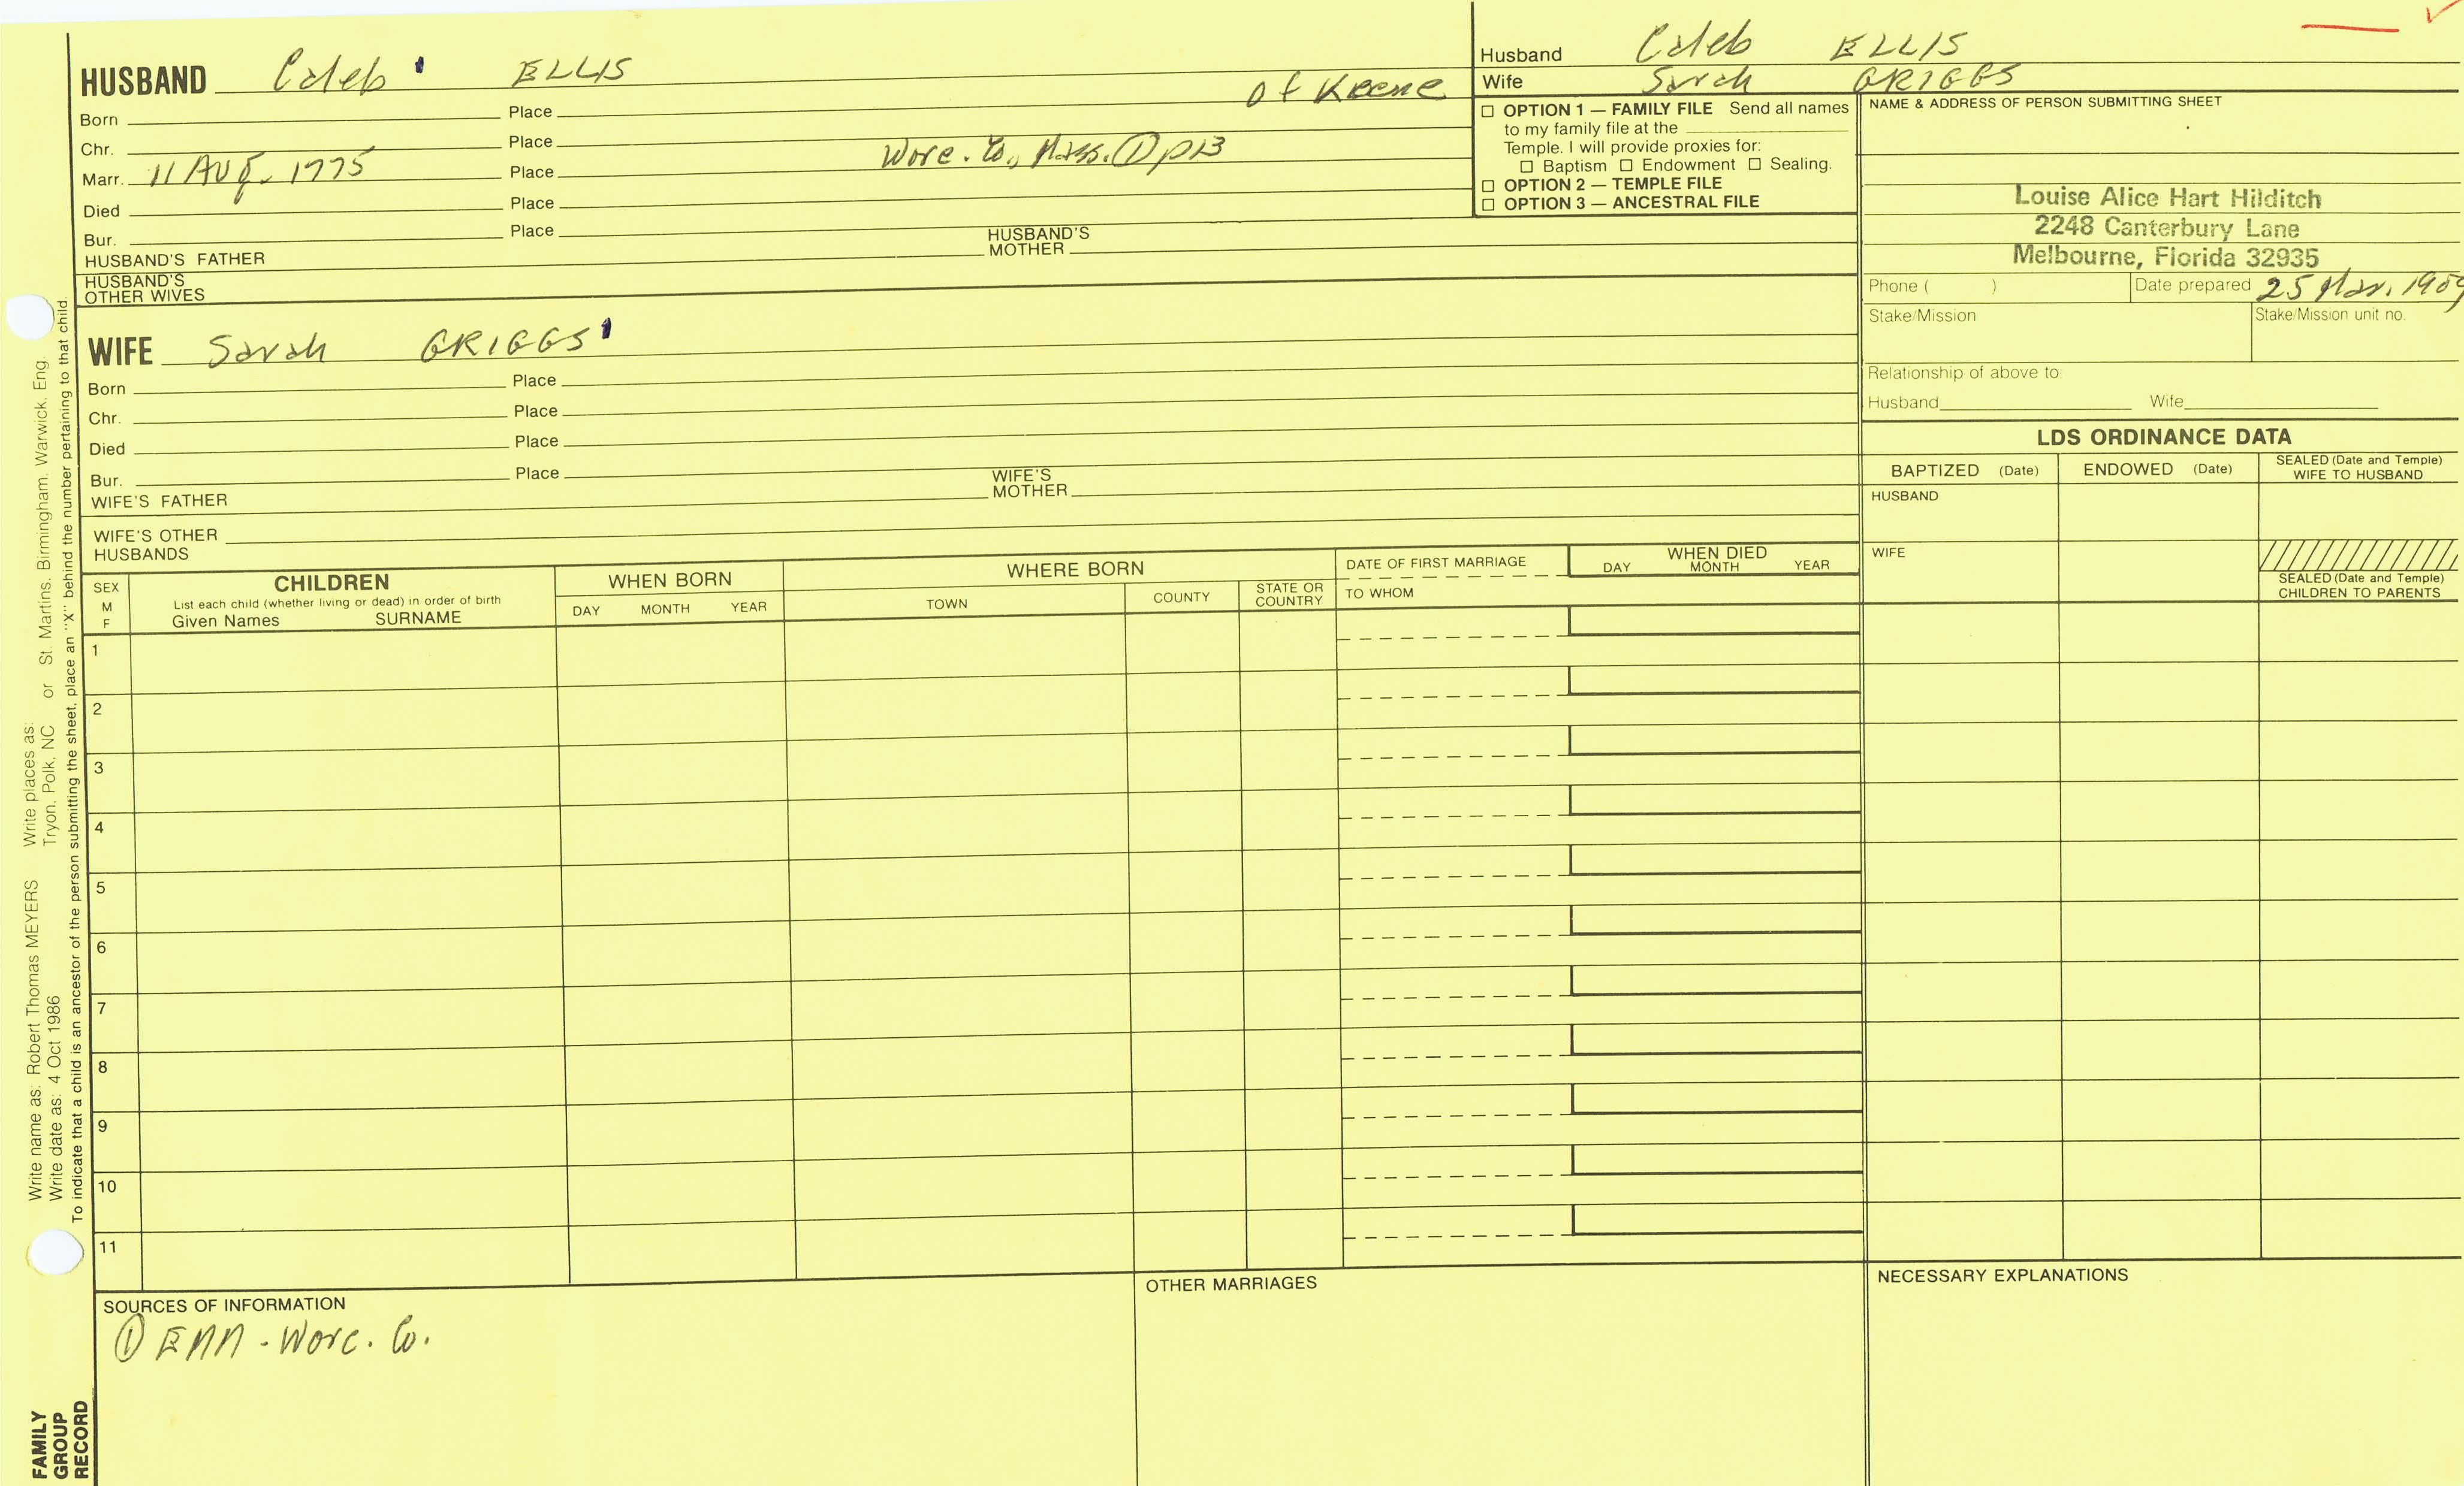 HUSBAND Caleb ELLIS of Keene
Born Place
Chr. Place
Marr. 11 AUG. 1775 Place Worc. Co., Mass. ① p13
Died Place
Bur. Place
HUSBAND'S FATHER HUSBAND'S MOTHER
HUSBAND'S OTHER WIVES
WIFE Sarah GRIGGS
Born Place
Chr. Place
Died Place
Bur. Place
WIFE'S FATHER WIFE'S MOTHER
WIFE'S OTHER HUSBANDS
Husband Caleb ELLIS
Wife Sarah GRIGGS
☐ OPTION 1 — FAMILY FILE Send all names
to my family file at the
Temple. I will provide proxies for:
☐ Baptism ☐ Endowment ☐ Sealing.
☐ OPTION 2 — TEMPLE FILE
☐ OPTION 3 — ANCESTRAL FILE
NAME & ADDRESS OF PERSON SUBMITTING SHEET
Louise Alice Hart Hilditch
2248 Canterbury Lane
Melbourne, Florida 32935
Phone ( ) Date prepared 25 Mar. 1989
Stake/Mission Stake/Mission unit no.
Relationship of above to:
Husband Wife
LDS ORDINANCE DATA
BAPTIZED (Date) ENDOWED (Date) SEALED (Date and Temple) WIFE TO HUSBAND
HUSBAND
WIFE
SEALED (Date and Temple)
CHILDREN TO PARENTS
SEX M F
CHILDREN
List each child (whether living or dead) in order of birth
Given Names SURNAME
WHEN BORN
DAY MONTH YEAR
WHERE BORN
TOWN COUNTY STATE OR COUNTRY
DATE OF FIRST MARRIAGE
TO WHOM
WHEN DIED
DAY MONTH YEAR
1
2
3
4
5
6
7
8
9
10
11
SOURCES OF INFORMATION
① EMM - Worc. Co.
OTHER MARRIAGES
NECESSARY EXPLANATIONS
Write name as: Robert Thomas MEYERS Write places as:
Write date as: 4 Oct 1986 Tryon, Polk, NC or St. Martins, Birmingham, Warwick, Eng.
To indicate that a child is an ancestor of the person submitting the sheet, place an "X" behind the number pertaining to that child.
FAMILY
GROUP
RECORD